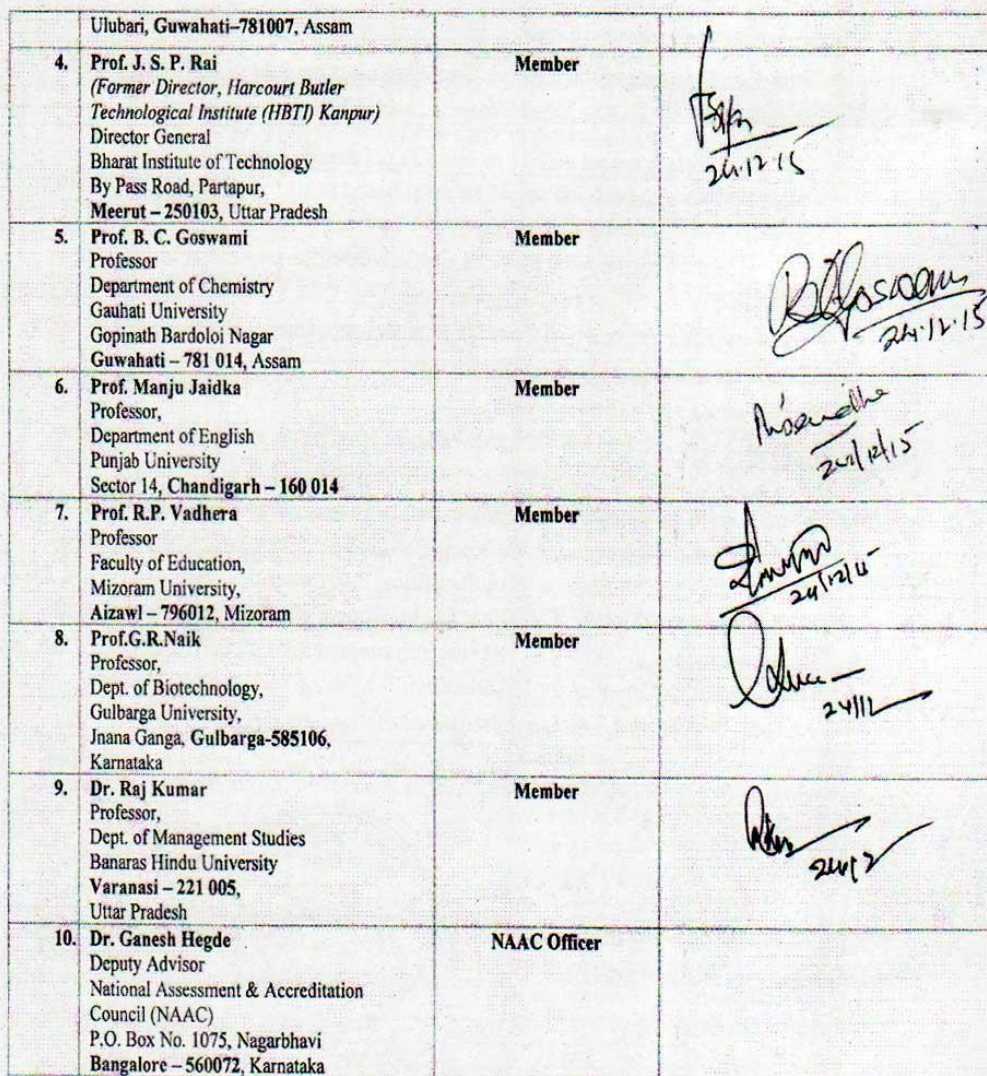 Ulubari, Guwahati–781007, Assam
4. Prof. J. S. P. Rai Member
(Former Director, Harcourt Butler
Technological Institute (HBTI) Kanpur)
Director General
Bharat Institute of Technology
By Pass Road, Partapur,
Meerut – 250103, Uttar Pradesh
24.12.15
5. Prof. B. C. Goswami Member
Professor
Department of Chemistry
Gauhati University
Gopinath Bardoloi Nagar
Guwahati – 781 014, Assam
BCGoswami
24.12.15
6. Prof. Manju Jaidka Member
Professor,
Department of English
Punjab University
Sector 14, Chandigarh – 160 014
24/12/15
7. Prof. R.P. Vadhera Member
Professor
Faculty of Education,
Mizoram University,
Aizawl – 796012, Mizoram
24/12/15
8. Prof.G.R.Naik Member
Professor,
Dept. of Biotechnology,
Gulbarga University,
Jnana Ganga, Gulbarga-585106,
Karnataka
24/12
9. Dr. Raj Kumar Member
Professor,
Dept. of Management Studies
Banaras Hindu University
Varanasi – 221 005,
Uttar Pradesh
24/12
10. Dr. Ganesh Hegde NAAC Officer
Deputy Advisor
National Assessment & Accreditation
Council (NAAC)
P.O. Box No. 1075, Nagarbhavi
Bangalore – 560072, Karnataka